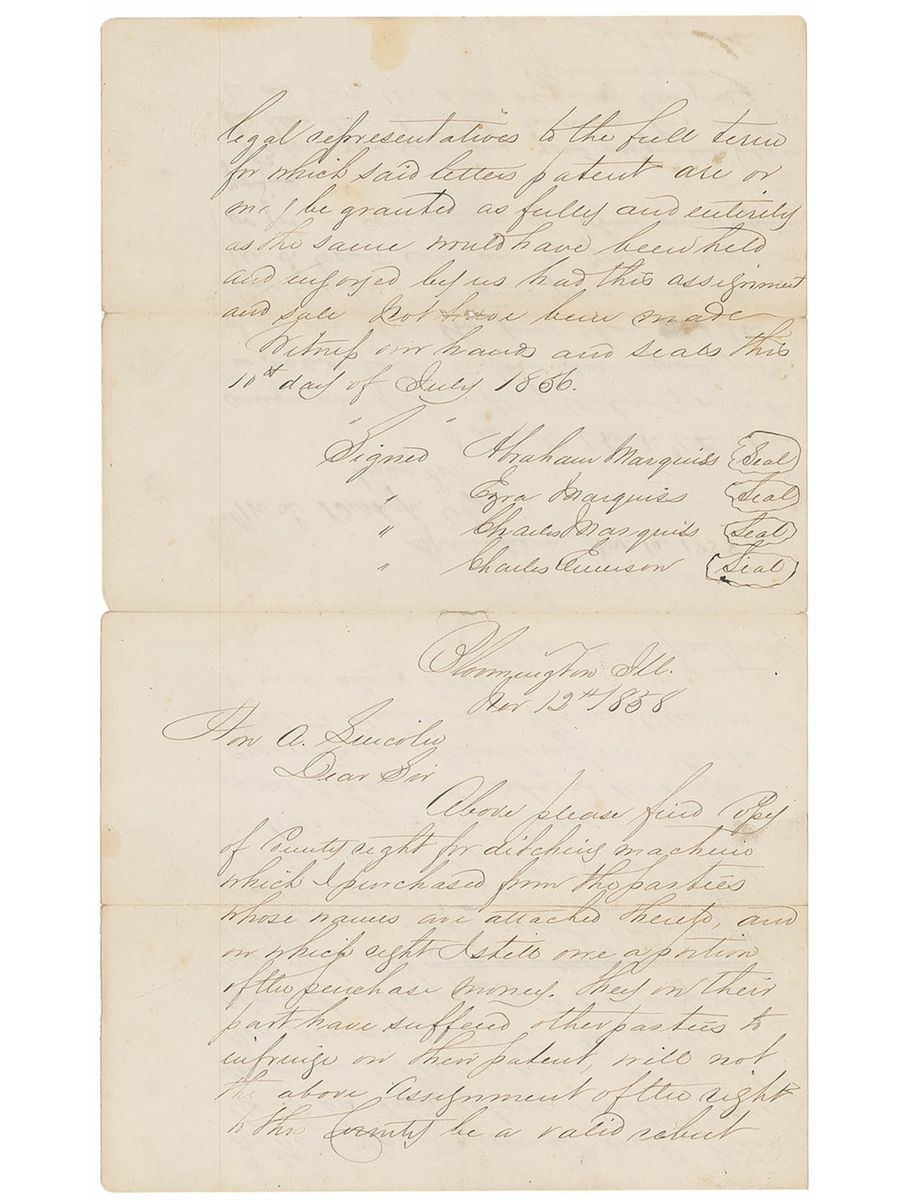 legal representatives to the full term
for which said letters patent are or
may be granted as fully and entirely
as the same would have been held
and enjoyed by us had this assignment
and sale not have been made
Witness our hands and seals this
10th day of July 1856.
"Signed" Abraham Marquiss Seal
" Ezra Marquiss Seal
" Charles Marquiss Seal
" Charles Emerson Seal
Bloomington Ill.
Nov 12th 1858
Hon A. Lincoln
Dear Sir
Above please find Copy
of County right for ditching machine
which I purchased from the parties
whose names are attached thereto, and
on which right I still owe a portion
of the purchase money. They on their
part have suffered other parties to
infringe on their patent, will not
the above assignment of the right
to this County be a valid